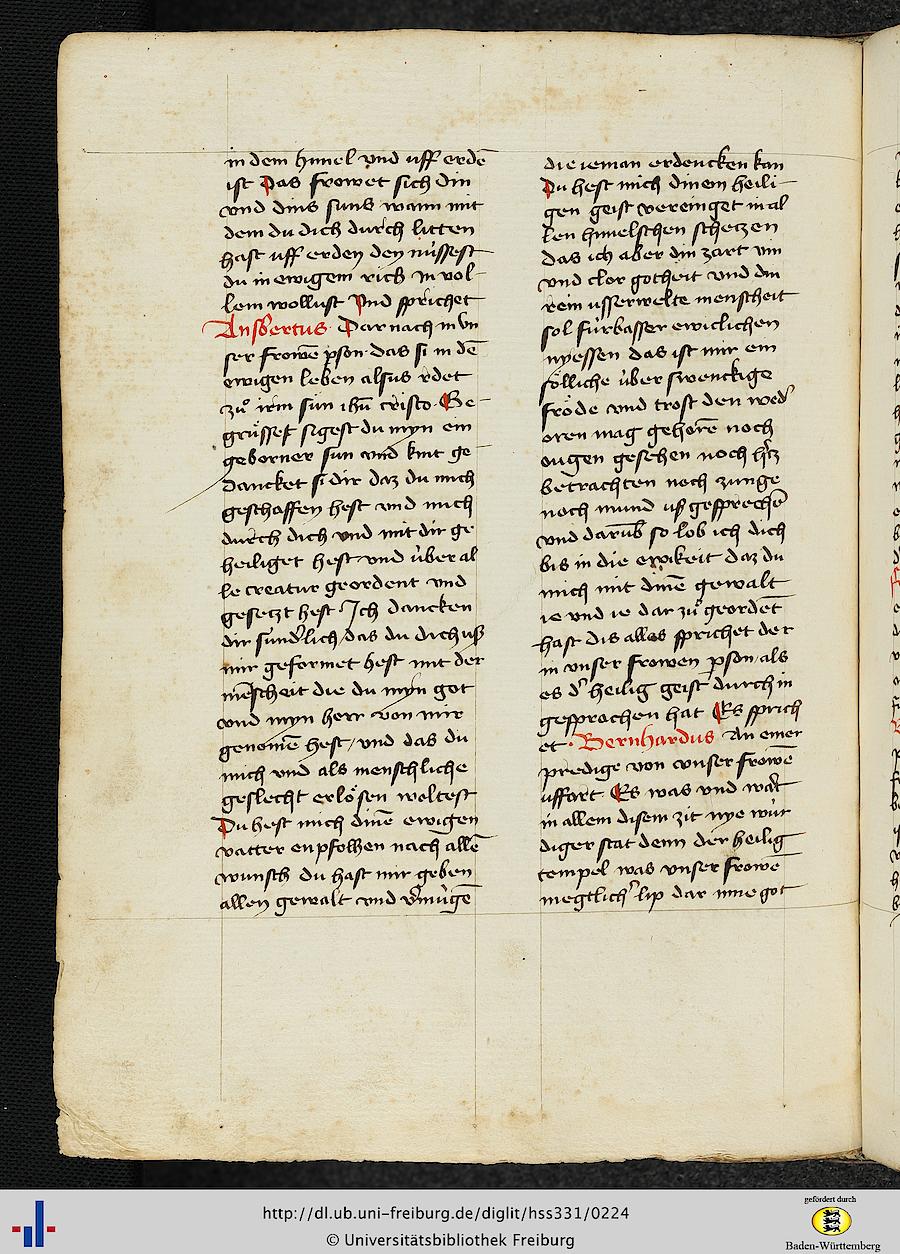 in dem himel vnd uff erdē
ist Das frowet sich din
vnd dins suns wann mit
dem du dich durch litten
hast uff erden den nússest
du in ewigem rich in vol-
lem wollust Vnd sprichet
Ansbertus Dar nach in vn
ser frowē pson das si in dē
ewigen leben alsus rdet
zuͦ irm sun ihū cristo Be-
gruͤsset sigest du myn ein
geborner sun vnd kint ge-
dancket si dir daz du mich
geschaffen hest vnd mich
durch dich vnd mit dir ge
heiliget hest vnd úber al
le creatur geordent vnd
gesetzt hest Ich dancken
dir sunderlich das du dich uß
mir geformet hest mit der
mēscheit die du myn got
vnd myn herr von mir
genomē hest / vnd das du
mich vnd als menschliche
geslecht erlösen woltest
Du hest mich dinē ewigen
vatter enpfolhen nach allē
wunsch du hast mir geben
allen gewalt vnd v̉múgē
die ieman erdencken kan
Du hest mich dinem heili-
gen geist vereinget in al
len himelschen schetzen
das ich aber din zart vin
vnd clor gotheit vnd din
rein usserwelte menscheit
sol fúrbasser ewiclichen
nyessen das ist mir ein
sölliche úber swenckige
fröde vnd trost den wed̉
oren mag gehorē noch
ougen gesehen noch h̉tz
betrachten noch zunge
noch mund uß gesprechē
vnd darūb so lob ich dich
bis in die ewikeit daz du
mich mit dinē gewalt
ie vnd ie dar zuͦ geordet
hast dis alles sprichet der
in vnser frowen pson / als
es d̉ heilig geist durch in
gesprochen hat Es sprich
et Bernhardus An einer
predige von vnser frowē
uffart Es was vnd wart
in allem disem zit nye wúr
diger stat denn der heilig
tempel was vnser frowē
megtlich̉ lip dar inne got
http://dl.ub.uni-freiburg.de/diglit/hss331/0224
© Universitätsbibliothek Freiburg
gefördert durch
Baden-Württemberg